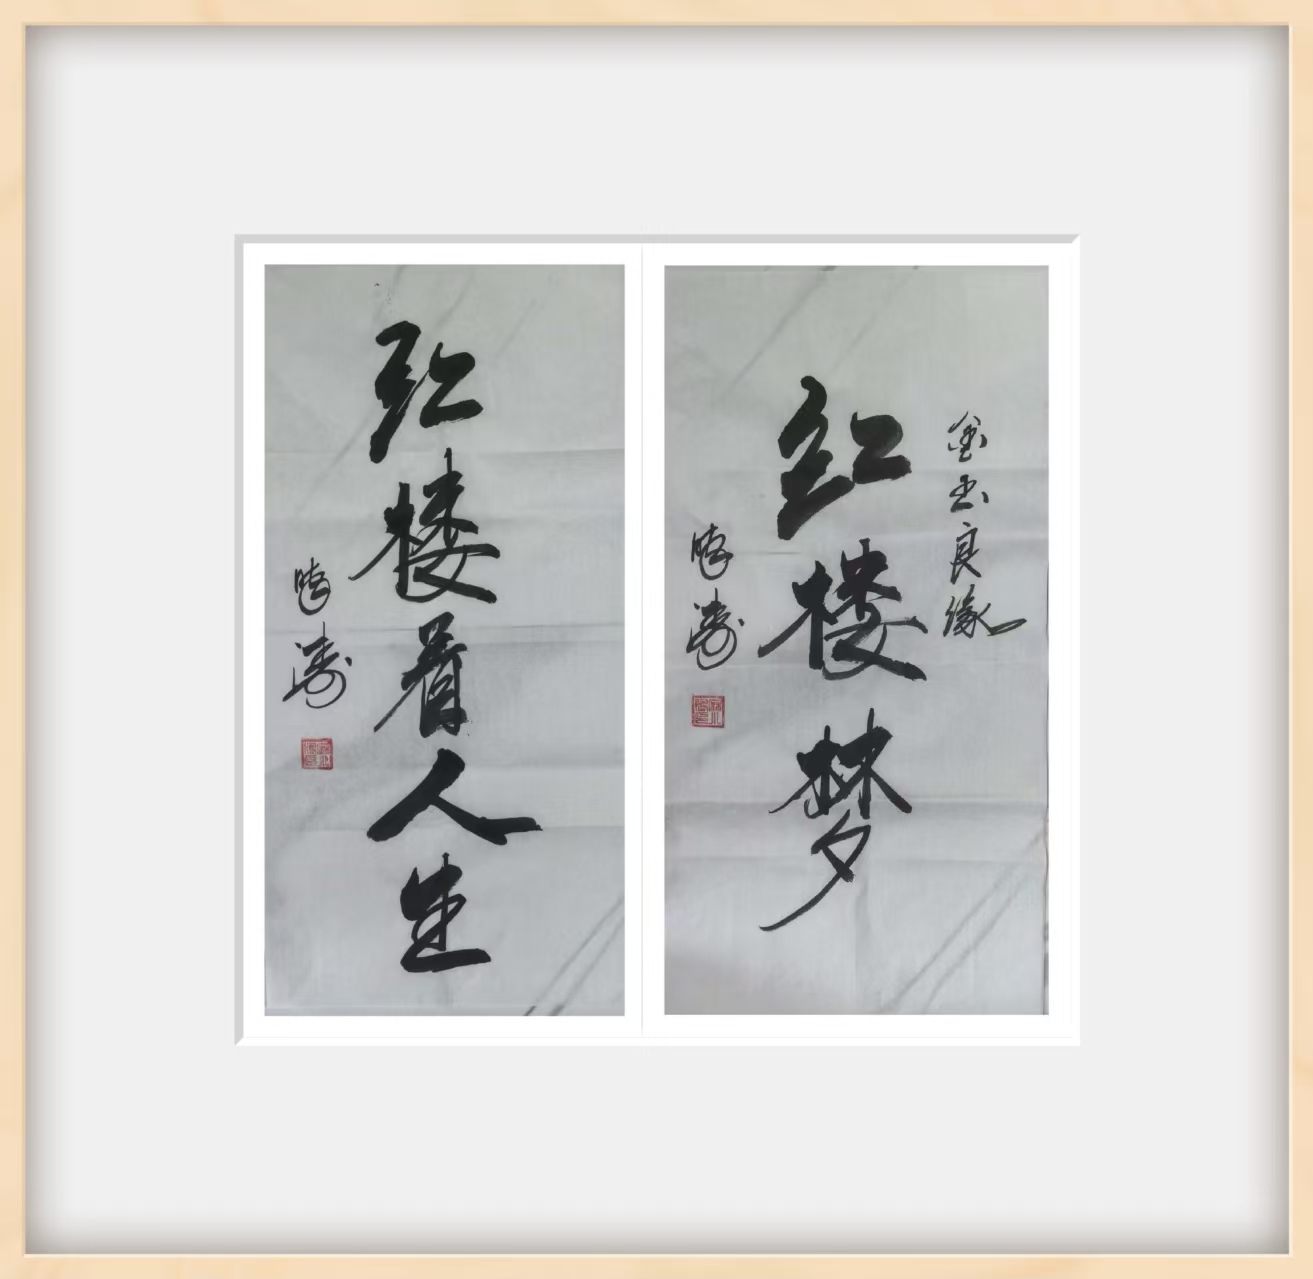 金玉良缘
红楼梦
晓涛
红楼看人生
晓涛